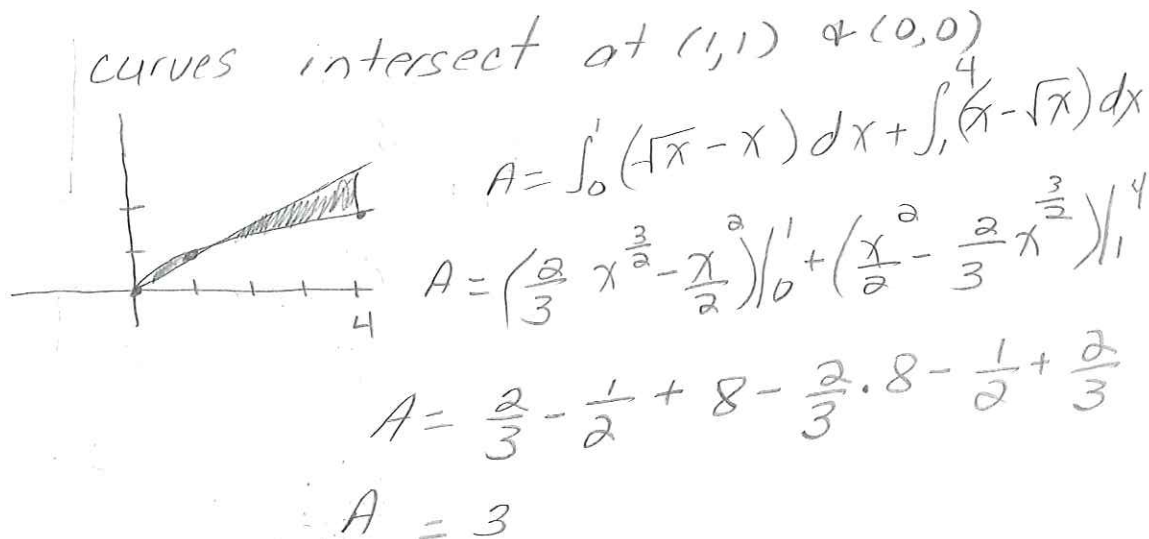 curves intersect at (1,1) & (0,0)
A = ∫₀¹ (√x - x) dx + ∫₁⁴ (x - √x) dx
A = (2/3 x^(3/2) - x²/2)|₀¹ + (x²/2 - 2/3 x^(3/2))|₁⁴
4
A = 2/3 - 1/2 + 8 - 2/3 · 8 - 1/2 + 2/3
A = 3